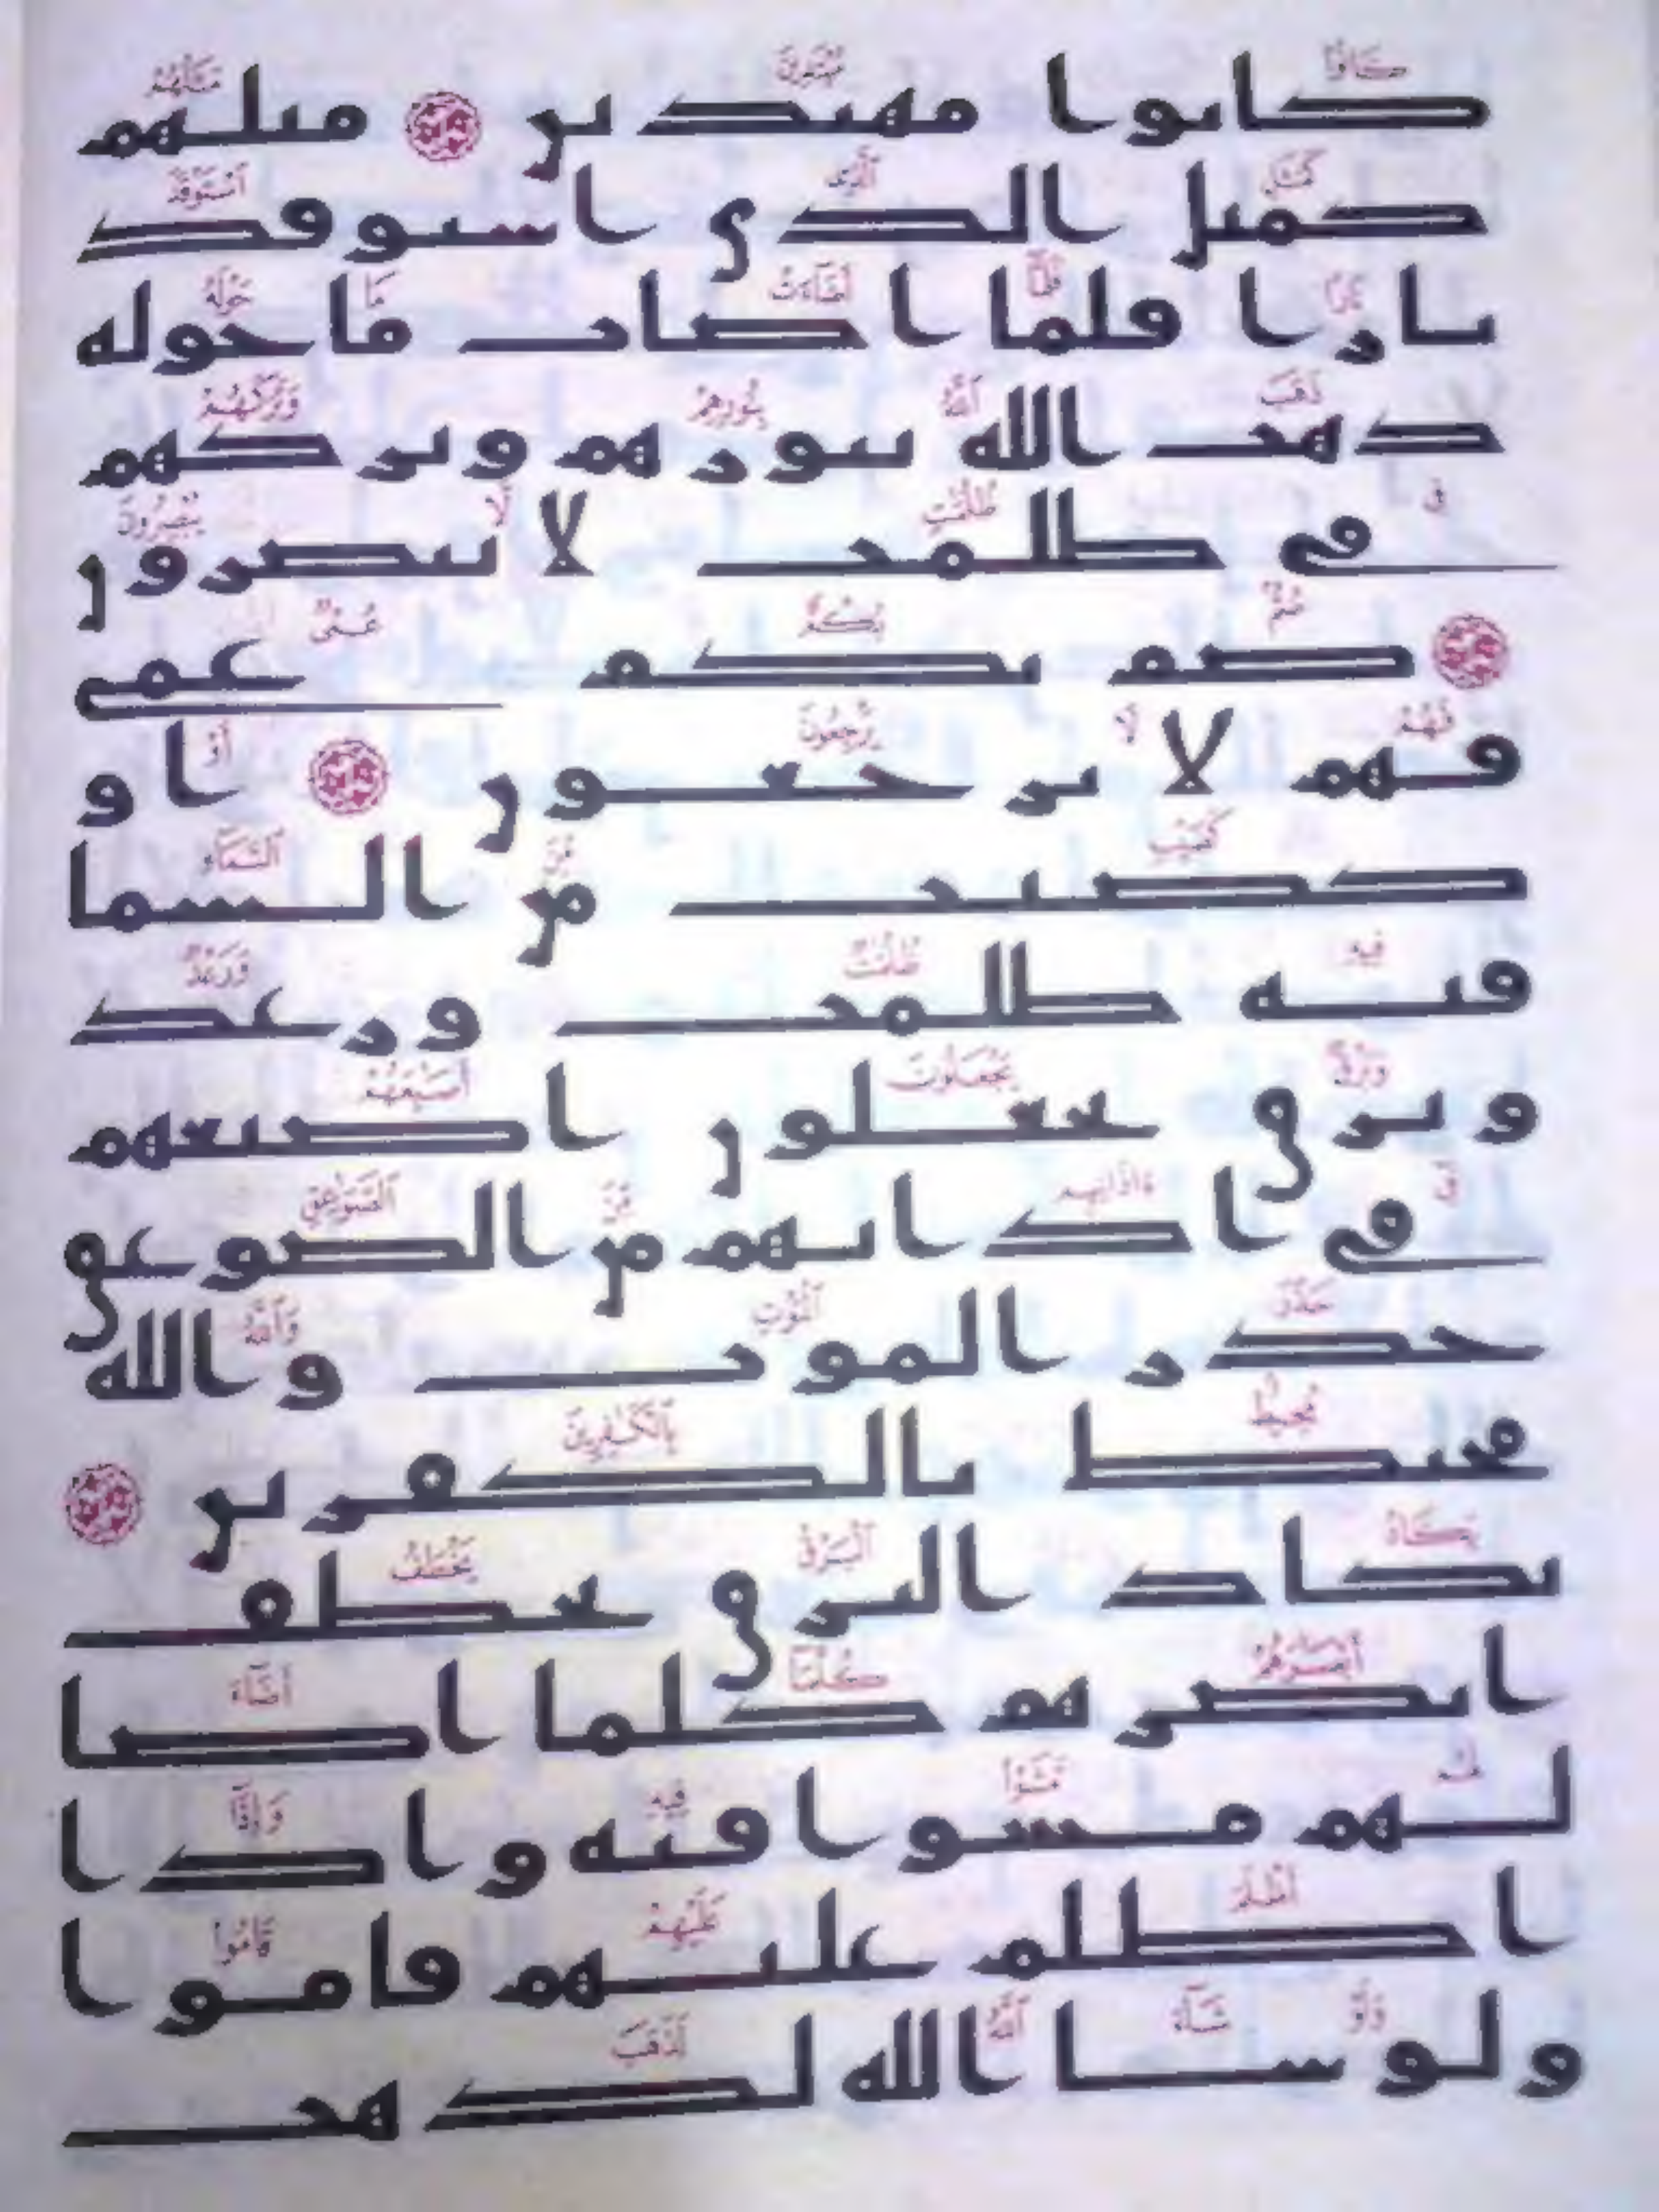 كانوا مهتدين مثلهم
كمثل الذي استوقد
نارا فلما اضات ما حوله
ذهب الله بنورهم وتركهم
في ظلمت لا يبصرون
صم بكم عمي
فهم لا يرجعون او
كصيب من السما
فيه ظلمت ورعد
وبرق يجعلون اصبعهم
في اذانهم من الصوعق
حذر الموت والله
محيط بالكفرين
يكاد البرق يخطف
ابصرهم كلما اضا
لهم مشوا فيه واذا
اظلم عليهم قاموا
ولو شا الله لذهب